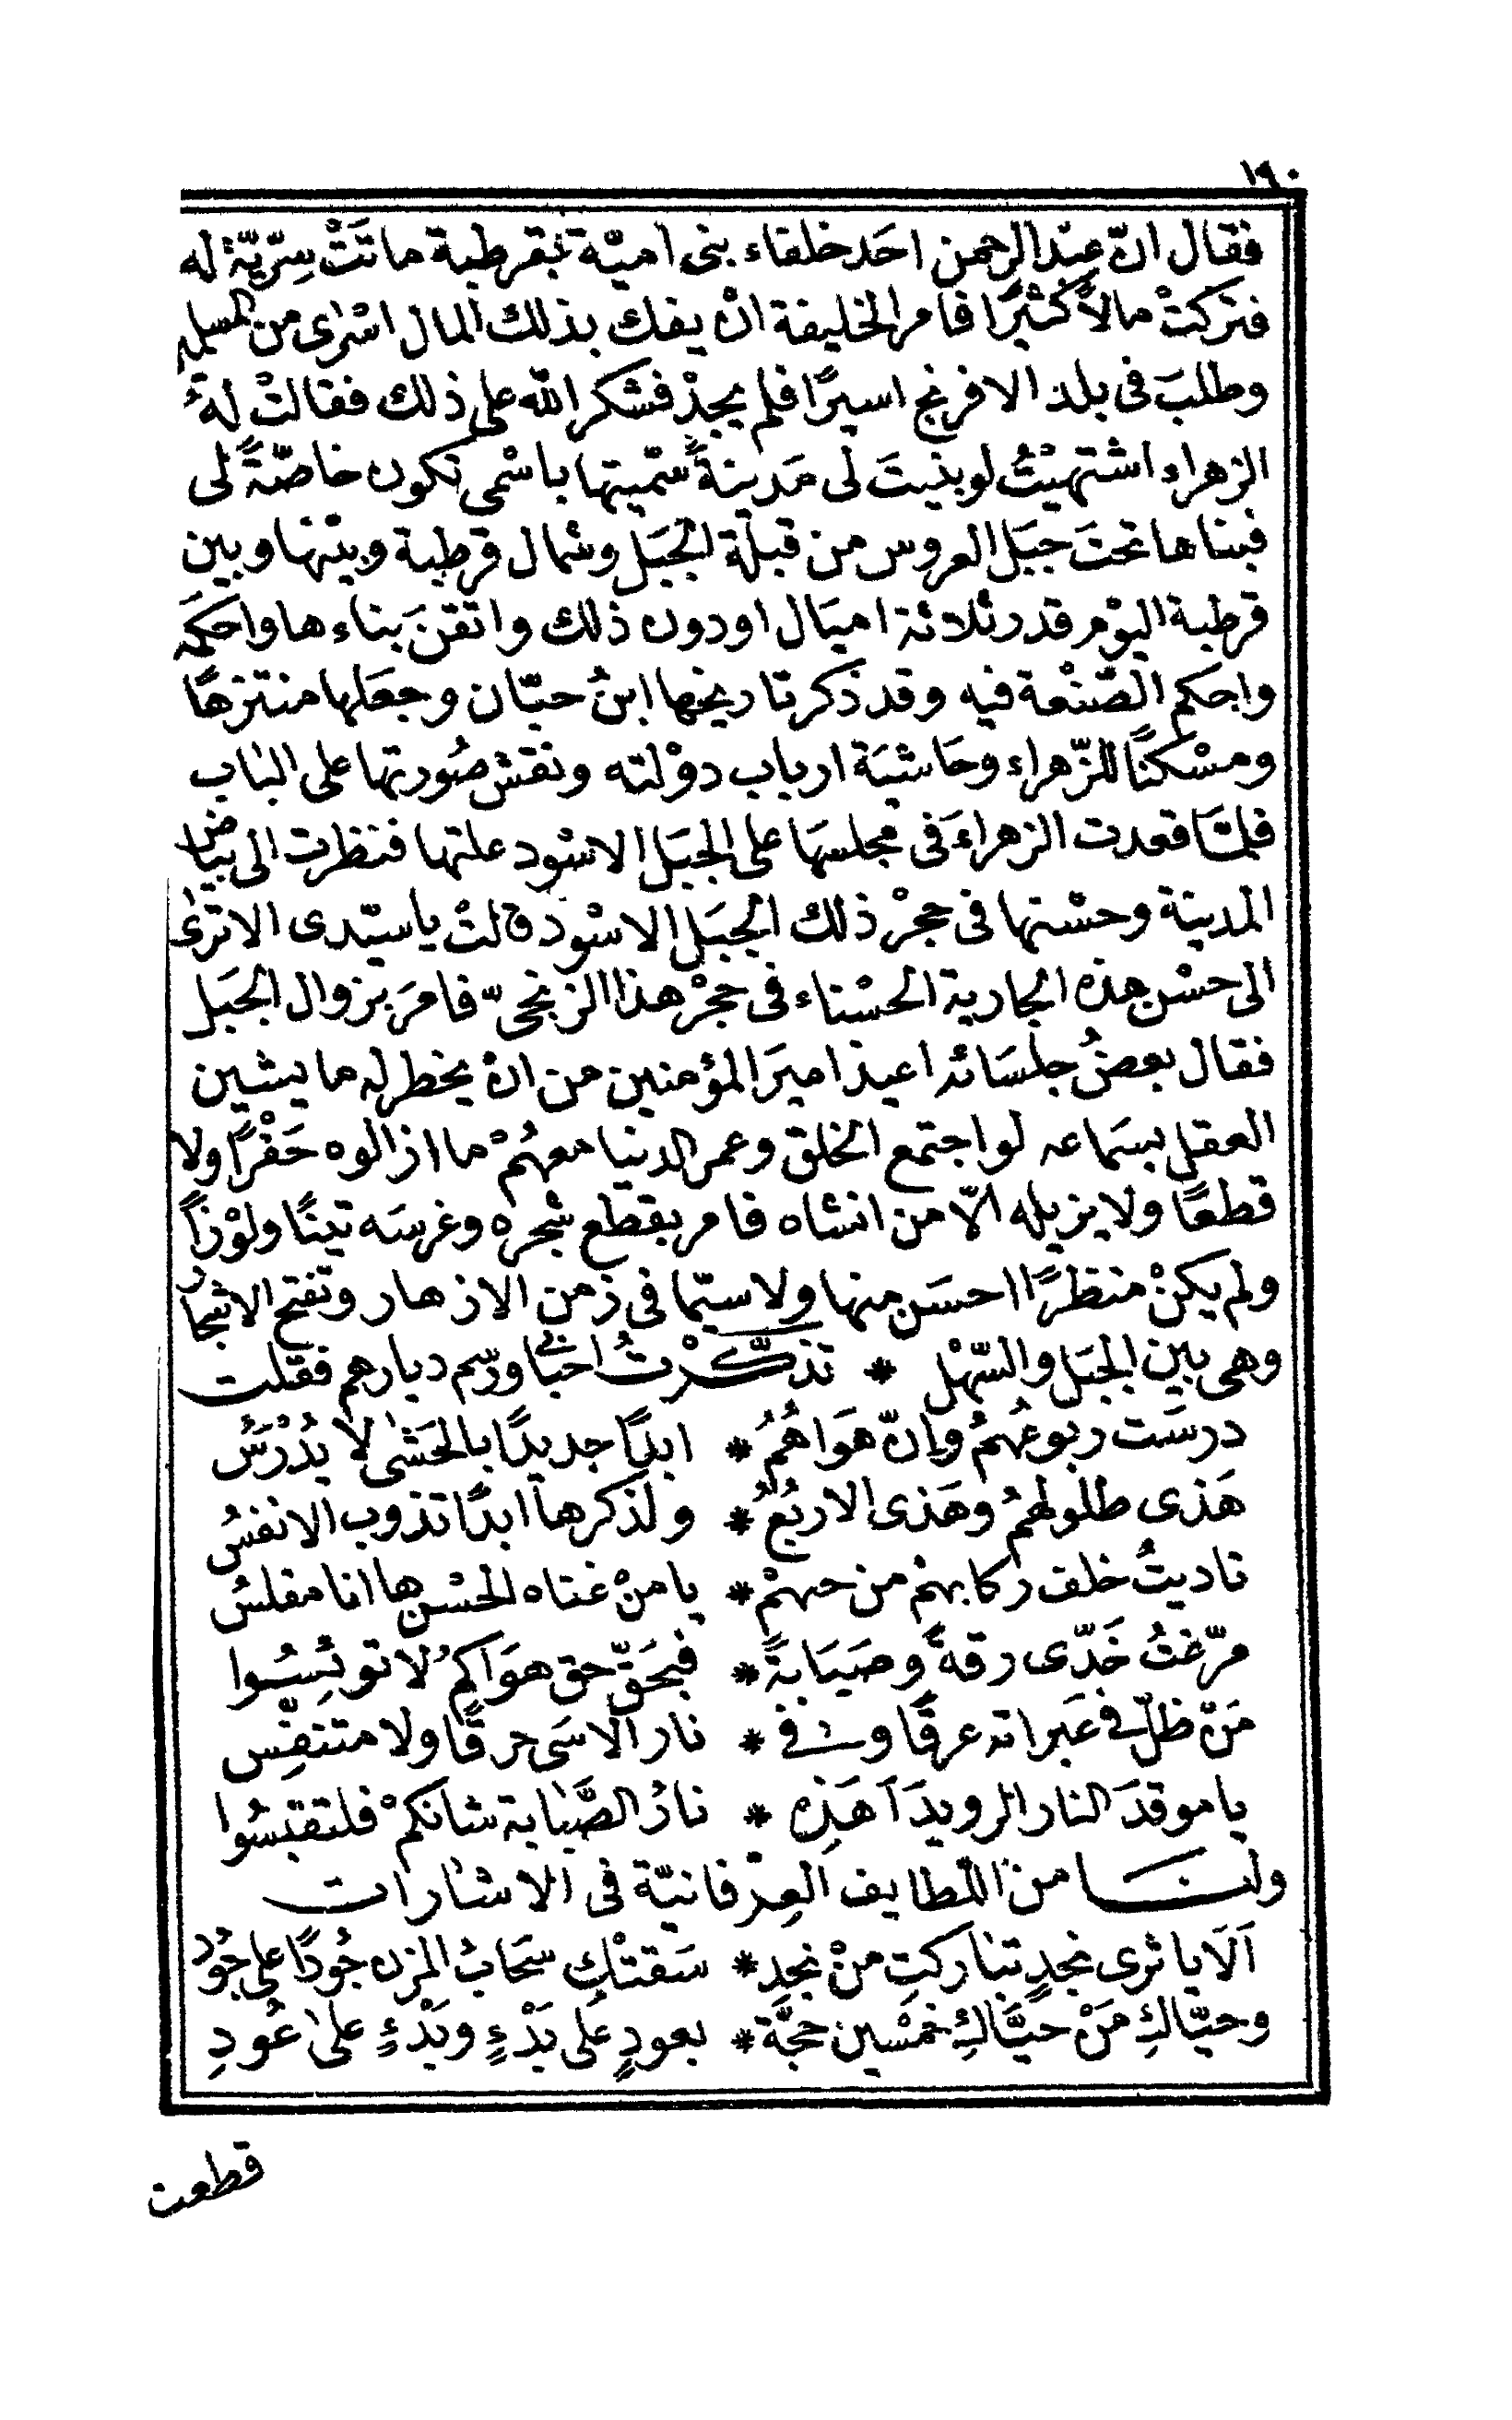 ١٩٠
فقال انّ عبد الرحمن احَد خلفاء بنى اميّة بقرطبة ماتَتْ سِرّيّةٌ له
فتركتْ مالاً كثيرًا فامر الخليفة انْ يفك بذلك المال اسْرٰى من المسلمين
وطلبَ فى بلد الافرنج اسيرًا فلم يجدْ فشكر الله على ذلك فقالتْ لهُ
الزهراء اشتهيْتُ لو بنيتَ لى مَدينةً سمّيتها باسْمى تكون خاصّةً لى
فبناها تحتَ جبَل العروس من قبلة الجبَل وشمال قرطبة وبيْنها وبين
قرطبة اليوْم قدر ثلاثة اميَال او دون ذلك واتقنَ بناءها واحكمَه
واحكم الصّنْعة فيه وقد ذكر تاريخها ابنُ حبّان وجعَلها منتزهًا
ومسْكنًا للزّهراء وحَاشيَة ارباب دوْلته ونقش صُورتها على البٰاب
فلمّا قعدت الزهراءَ فى مجلسهَا على الجبَل الاسْود علتها فنظرت الى بياض
المدينة وحسْنها فى حجرْ ذلك الجبَل الاسْود قالتْ يا سيّدى الا ترٰى
الى حسْن هذه الجارية الحسْناء فى حجرْ هذا الزنجىّ فامرَ بزوال الجبَل
فقال بعضُ جلسَائه اعيذ اميرَ المؤمنين من انْ يخطر له ما يشين
العقل بسَماعه لو اجتمع الخلق وعمر الدنيا معهُمْ ما ازالوه حَفْرًا ولا
قطعًا ولا يزيله الّا من انشاه فامر بقطع شجره وغرسَه تينًا ولوْزاً
ولم يكنْ منظرًا احسَن منها ولا سيّما فى زمن الازهار وتفتح الاشجار
وهى بين الجبَل والسّهْل * تذكّرْتُ احبَابى ورسم ديارهم فقلت
درسَت ربوعُهمُ وانّ هوَاهُمُ * ابدًا جديدًا بالحَشىٰ لا يُدْرَسُ
هَذى طلولهمُ وهَذى الاربُعُ * ولذكرها ابدًا تذوب الانفسُ
ناديتُ خلف ركابهمْ من حبهمْ * يا منْ غناه الحسْن ها انا مفلسُ
مرّغتُ خَدّى رقةً وصَبَابةً * فبحَقّ حق هوَاكمُ لا تويئسُوا
مَنْ ظلّ فى عَبراته غرقًا وفى * نار الاسَى حرقًا ولا متنفّس
يا موقدَ النار الرويدَ آ هَذِه * نارُ الصَّبٰابة شانكمْ فلتقتبسُوا
ولنــا من اللّطايف العِرْفانيّة فى الاشارات
اَلَا يا ثرى نجدٍ تبٰاركتِ منْ نجدِ * سَقتْكِ سحَابُ المزن جُودًا على جُود
وحيّاكِ مَنْ حيَّاكِ خمْسين حجَّة * بعودٍ عَلى بَدْءٍ وبَدْءٍ علىٰ عُودِ
قطعت